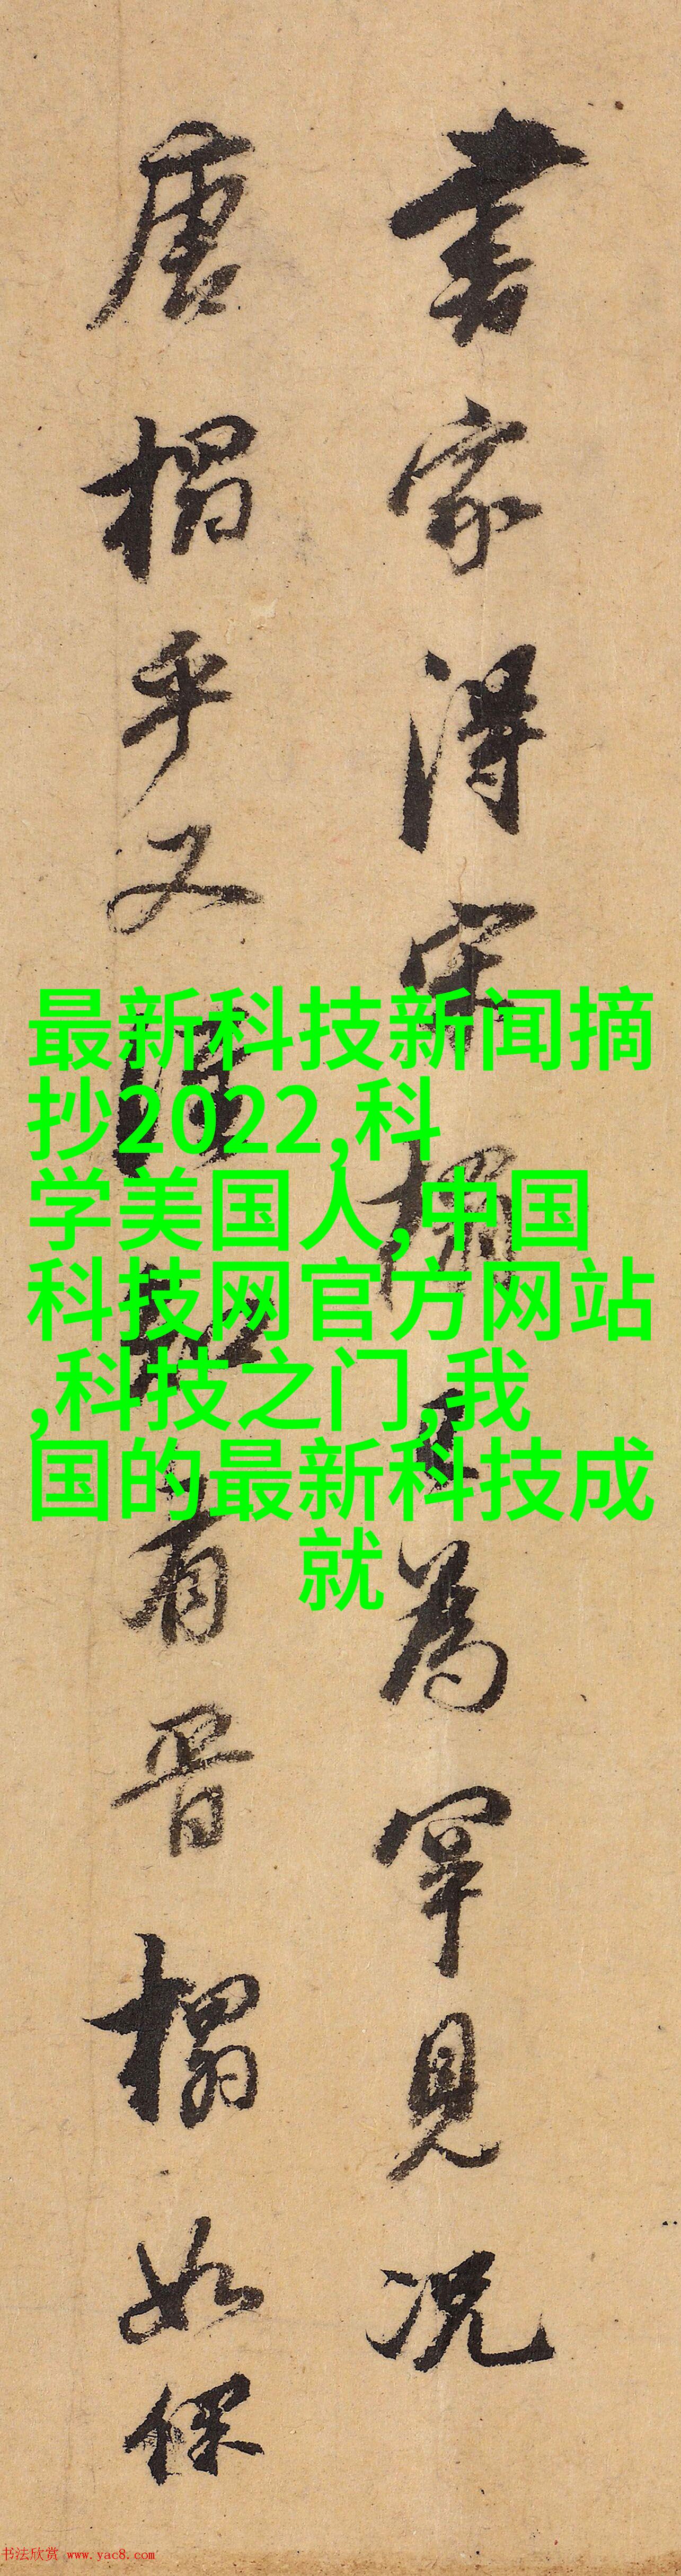 書家得宋榻已為罕見況
唐榻乎又有晉榻如保
最新科技新闻摘
抄2022,科
学美国人,中国
科技网官方网站
,科技之门,我
国的最新科技成
就
书法欣赏 www.yac8.com